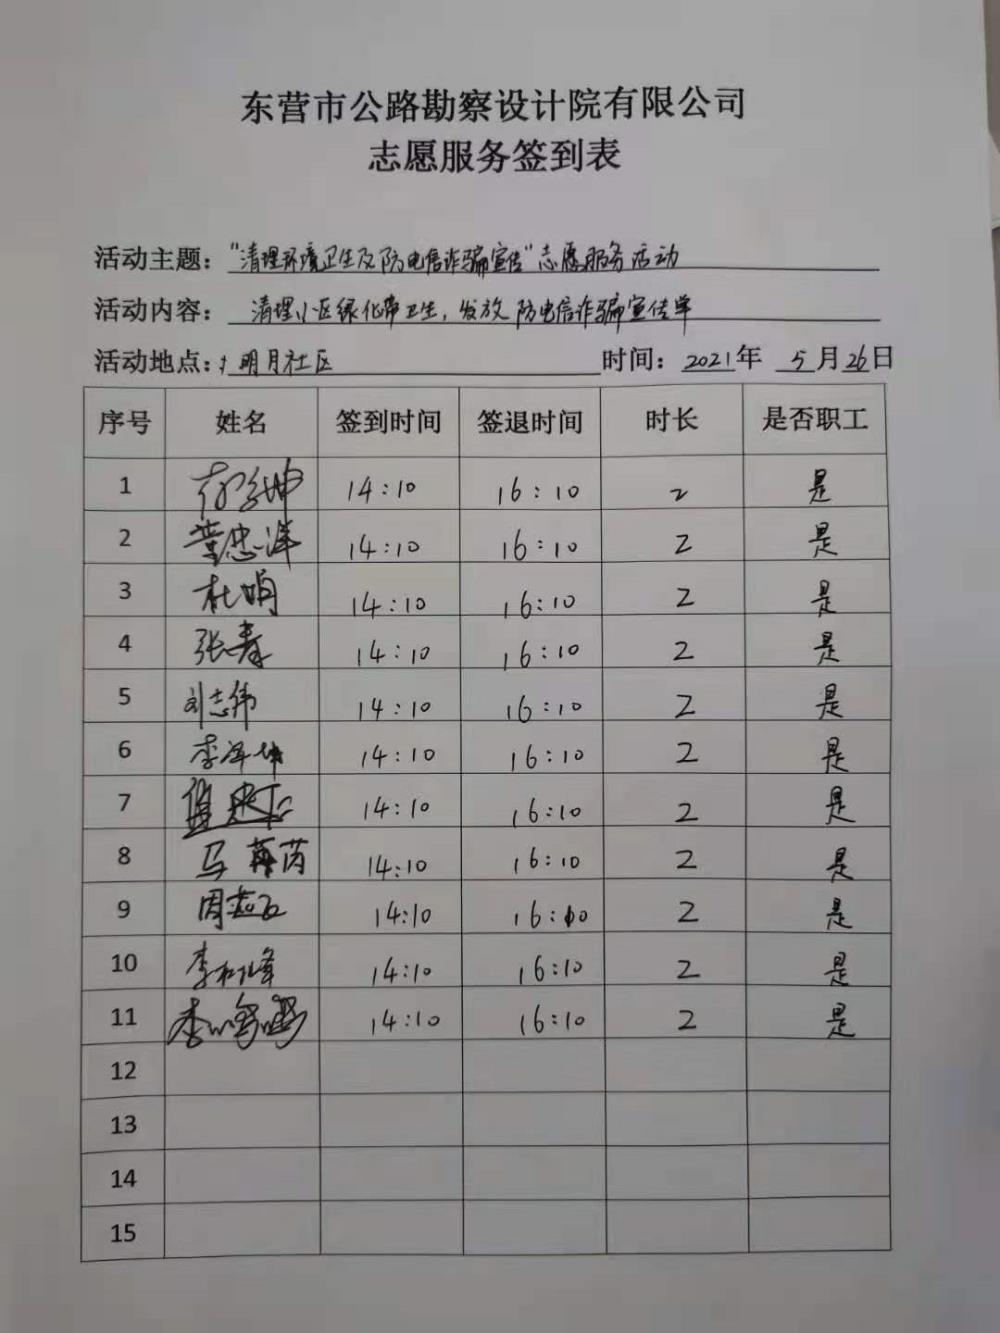 东营市公路勘察设计院有限公司
志愿服务签到表
活动主题："清理环境卫生及防电信诈骗宣传"志愿服务活动
活动内容：清理小区绿化带卫生，发放防电信诈骗宣传单
活动地点：明月社区 时间：2021年 5月26日
序号 姓名 签到时间 签退时间 时长 是否职工
1 14:10 16:10 2 是
2 董忠洋 14:10 16:10 2 是
3 杜娟 14:10 16:10 2 是
4 张春 14:10 16:10 2 是
5 刘志伟 14:10 16:10 2 是
6 李泽坤 14:10 16:10 2 是
7 14:10 16:10 2 是
8 马 芮 14:10 16:10 2 是
9 周 14:10 16:10 2 是
10 李 峰 14:10 16:10 2 是
11 李 14:10 16:10 2 是
12
13
14
15